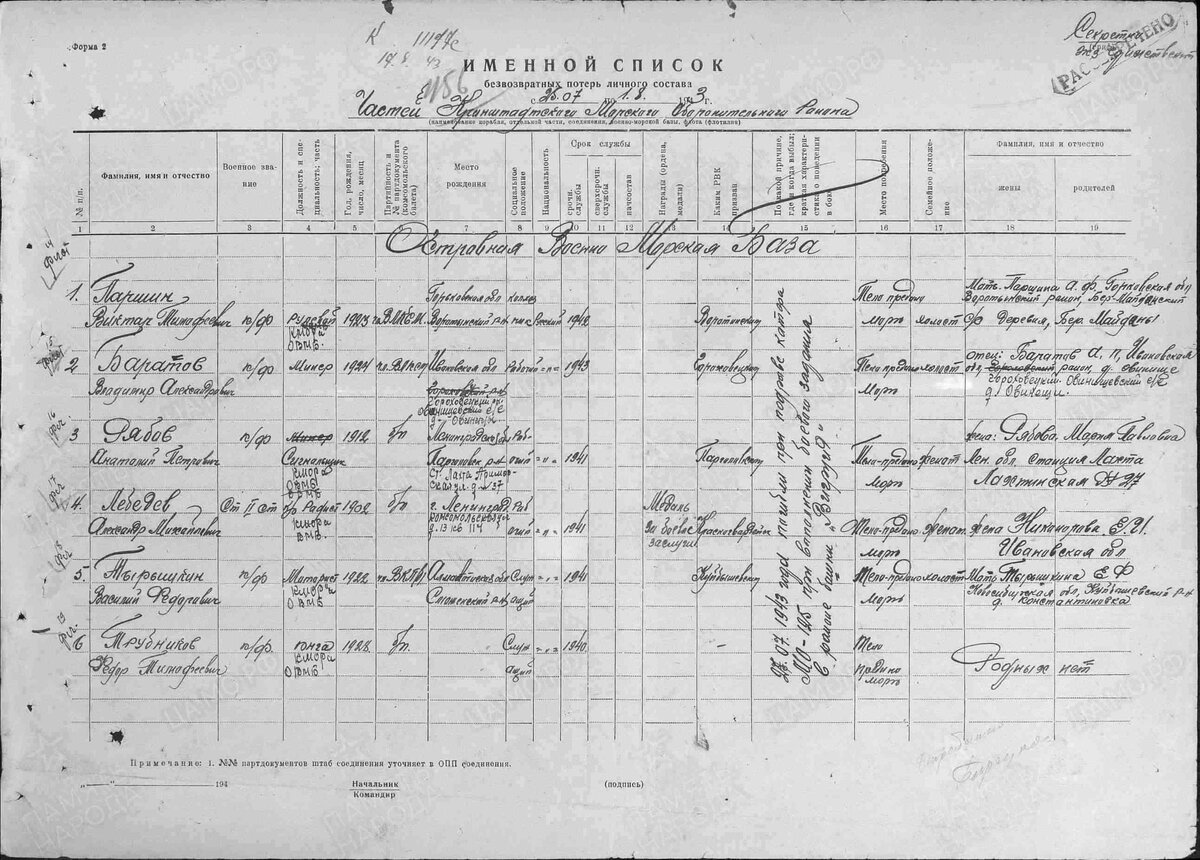 Форма 2
К 11177с
19 8 43
1156
Секретно
экз. единственный
РАССЕКРЕЧЕНО
ИМЕННОЙ СПИСОК
безвозвратных потерь личного состава
с 25.07 по 1.8. 1943 г.
Частей Кронштадтского Морского Оборонительного Района
(наименование корабля, отдельной части, соединения, военно-морской базы, флота (флотилии)
№ п/п.
Фамилия, имя и отчество
Военное звание
Должность и специальность; часть
Год рождения, число, месяц
Партийность и № партдокумента (комсомольского билета)
Место рождения
Социальное положение
Национальность
Срок службы
срочн. службы
сверхсрочн. службы
начсостав
Награды (ордена, медали)
Каким РВК призван
По какой причине, где и когда выбыл; краткая характеристика о поведении в бою
Место погребения
Семейное положение
Фамилия, имя и отчество
жены
родителей
1 2 3 4 5 6 7 8 9 10 11 12 13 14 15 16 17 18 19
Островная Военно Морская База
1. Паршин Виктар Тимофеевич к/ф рулевой КМОРа ОВМБ. 1923 чл ВЛКСМ Горьковная обл Воротынский р-н колхоз Русский 1942 Воротынским Тело предано морю холост Мать. Паршина А. Ф. Горковская обл Воротынский район, Бер-Майданский с/с деревня, Бер. Майданы
2 Баратов Владимир Александрович к/ф Минер 1924 Ивановская обл Гороховецкий рн. Овинищевский с/с Рабочий -"- 1943 Гороховецким Тело предано Морю холост отец: Баратов А. П, Ивановская обл, район, д. Овинище Гороховецкий. Овинищевский с/с д Овинещи.
3 Рябов Анатолий Петрович к/ф Минер Сигнальщик КМОРа ОВМБ 1912 б/п Ленинградская обл Парголовск. р-н ст. Лахта Приморская ул. д-37 -"- 1941 Парголовским Тело-предано Морю женат жена: Рябова, Мария Павловна Лен. обл. станция Лахта Лахтинская д 27
4. Лебедев Александр Михайлович Ст II ст Радист КМОРа ОВМБ. 1902 б/п г. Ленинград Комсомольская д. 13 кв 114 -"- 1941 Медаль за боевые заслуги Красногвардейск Тело-предано морю женат. жена Никанорова Е. И. Ивановская обл
5. Тырышкин Василий Федорович к/ф Моторист КМОРа ОВМБ 1922 чл ВКП(б) Алматинская обл Смоленский р.н Служащий -"- 1941 Куйбышевским Тело-предано морю холост Мать Тырышкина Е Ф Новосибирская обл, Куйбышевский р-н д. Константиновка
6 Трубников Федор Тимофеевич к/ф. юнга КМОРа ОВМБ 1928 б/п. Служащий -"- 1940. – Тело предано морю Родных нет
25.07 1943 года погибли при подрыве катера
МО-125 при выполнении боевого задания
в районе банки
Примечание: 1. №№ партдокументов штаб соединения уточняет в ОПП соединения.
„____“ ____________ 194
Начальник
Командир
(подпись)